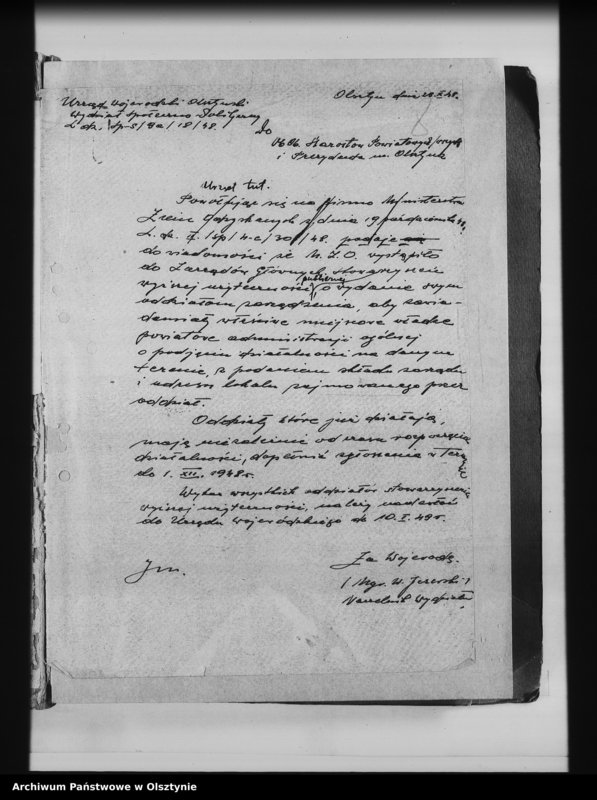 Urząd Wojewódzki Olsztyński
Wydział Społeczno Polityczny
L. dz. Sp-5/9a/18/48.
Olsztyn dnia 48.
do
Ob Ob. Starostów Powiatowych /wszys
i Prezydenta m. Olsztyna
Urząd tut.
Powołując się na pismo Ministerstwa
Ziem Odzyskanych z dnia 19 października 48
L. dz. /Sp/4-c/30/48. podaje się
do wiadomości że M.Z.O. wystąpiło
do Zarządów Głównych stowarzyszeń
wyższej użyteczności publicznej o wydanie swym
oddziałom zarządzenia, aby zawia-
damiały właściwe miejscowe władze
powiatowe administracji ogólnej
o podjęciu działalności na danym
terenie, z podaniem składu zarządu
i adresu lokalu zajmowanego przez
oddział.
Oddziały które już działają,
mają niezależnie od czasu rozpoczęcia
działalności, dopełnić zgłoszenia w term
do 1. XII. 1948 r.
Wykaz wszystkich oddziałów stowarzyszeń
wyższej użyteczności, należy nadesłać
do Urzędu Wojewódzkiego do 10.I.49 r.
Za Wojewodę.
/ Mgr. W. Jezierski /
Naczelnik Wydziału
Archiwum Państwowe w Olsztynie